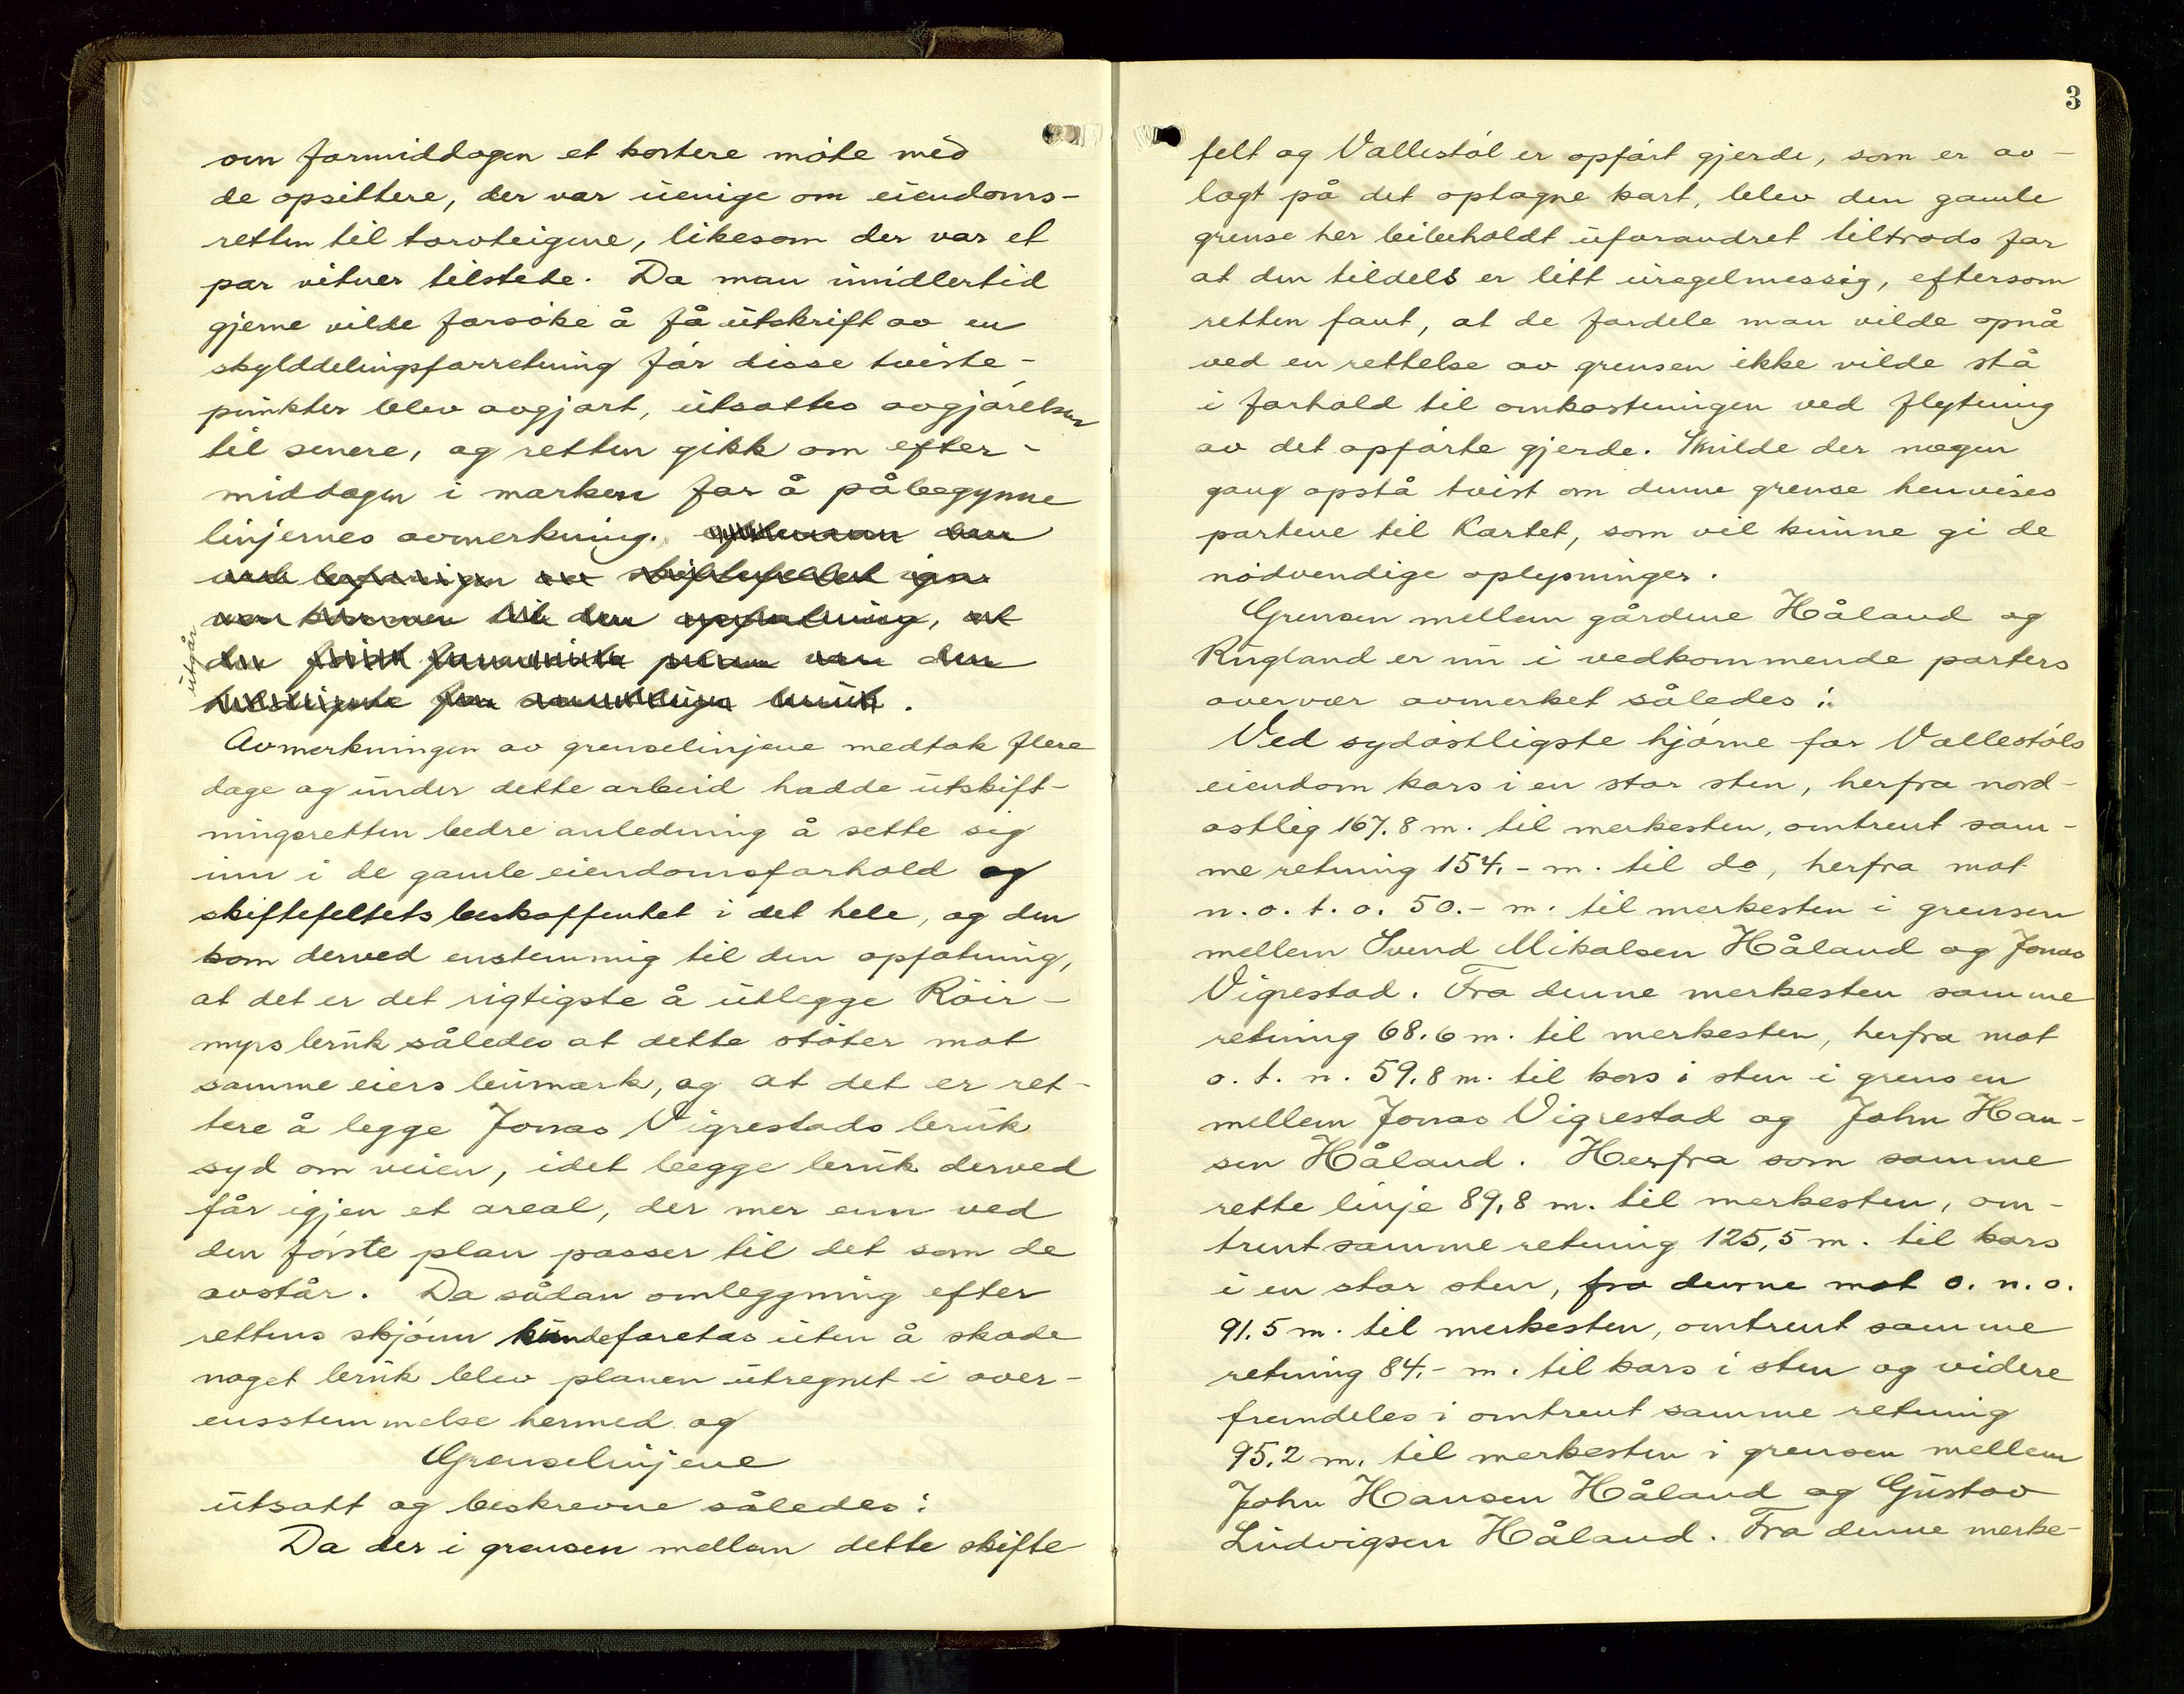 om formiddagen et kortere möte med
de opsittere, der var uenige om eiendoms-
retten til torvteigene, likesom der var et
par vitner tilstede. Da man imidlertid
gjerne vilde forsöke å få utskrift av en
skylddelingsforretning før disse tviste-
punkter blev avgjort, utsattes avgjørelsen
til senere, og retten gikk om efter-
middagen i marken for å påbegynne
linjernes avmerkning. eftersom den
ved befaringen av skiftefeltet igen
var kommen til den opfatning, at
den först plan var den
for samtlige bruk.
utgår
Avmerkningen av grenselinjene medtok flere
dage og under dette arbeid hadde utskift-
ningsretten bedre anledning å sette sig
inn i de gamle eiendomsforhold og
skiftefeltets beskaffenhet i det hele, og den
kom derved enstemmig til den opfatning,
at det er det rigtigste å utlegge Röir-
myrs bruk således at dette stöter mot
samme eiers heimark, og at det er ret-
tere å legge Jonas Vigrestads bruk
syd om veien, idet begge bruk derved
får igjen et areal, der mer enn ved
den förste plan passer til det som de
avstår. Da sådan omleggning efter
rettens skjönn kunde foretas uten å skade
noget bruk blev planen utregnet i over-
ensstemmelse hermed og
Grenselinjene
utsatt og beskrevne således:
Da der i grensen mellem dette skifte
3
felt og Vallestöl er opfört gjerde, som er av-
lagt på det optagne kart, blev den gamle
grense her beibeholdt uforandret tiltrods for
at den tildels er litt uregelmessig, eftersom
retten fant, at de fordele man vilde opnå
ved en rettelse av grensen ikke vilde stå
i forhold til omkostningen ved flytning
av det opförte gjerde. Skulde der nogen
gang opstå tvist om denne grense henvises
partene til Kartet, som vil kunne gi de
nödvendige oplysninger.
Grensen mellem gårdene Håland og
Rugland er nu i vedkommende parters
overvær avmerket således:
Ved sydöstligste hjörne for Vallestöls
eiendom kors i en stor sten, herfra nord-
ostlig 167.8 m. til merkesten, omtrent sam-
me retning 154.- m. til do, herfra mot
n. o. t. o. 50.- m. til merkesten i grensen
mellem Svend Mikalsen Håland og Jonas
Vigrestad. Fra denne merkesten samme
retning 68.6 m. til merkesten, herfra mot
o. t. n. 59.8 m. til kors i sten i grensen
mellem Jonas Vigrestad og John Han-
sen Håland. Herfra som samme
rette linje 89,8 m. til merkesten, om-
trent samme retning 125,5 m. til kors
i en stor sten, fra denne mot o. n. o.
91.5 m. til merkesten, omtrent samme
retning 84.- m. til kors i sten og videre
fremdeles i omtrent samme retning
95.2 m. til merkesten i grensen mellem
John Hansen Håland og Gustav
Ludvigsen Håland. Fra denne merke-